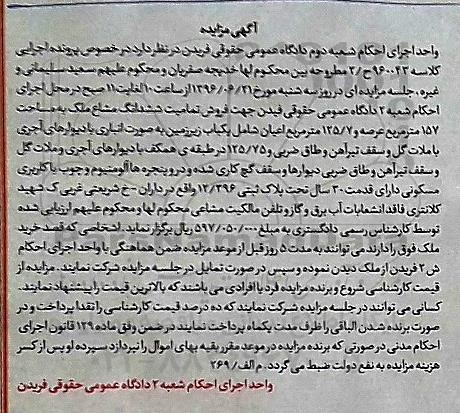 آگهی مزایده
واحد اجرای احکام شعبه دوم دادگاه عمومی حقوقی فریدن در نظر دارد در خصوص پرونده اجرایی
کلاسه ۹۶۰۰۴۳ ح/۲ مطروحه بین محکوم لها خدیجه صفریان و محکوم علیهم سعید سلیمانی و
غیره، جلسه مزایده ای در روز سه شنبه مورخ ۱۳۹۶/۰۶/۲۱ از ساعت ۱۰ لغایت ۱۱ صبح در محل اجرای
احکام شعبه ۲ دادگاه عمومی حقوقی فیدن جهت فروش تمامیت ششدانگ مشاع ملک به مساحت
۱۵۷ مترمربع عرصه و ۱۲۵/۷ مترمربع اعیان شامل یکباب زیرزمین به صورت انباری با دیوارهای آجری
با ملات گل و سقف تیرآهن و طاق ضربی و ۱۲۵/۷۵ در طبقه ی همکف با دیوارهای آجری و ملات گل
و سقف تیرآهن و طاق ضربی دیوارها و سقف گچ کاری شده و در و پنجره ها آلومنیوم و چوب با کاربری
مسکونی دارای قدمت ۳۰ سال تحت پلاک ثبتی ۱۲/۳۹۶ واقع در داران - خ شریعتی غربی ک شهید
کلانتری فاقد انشعابات آب برق و گاز و تلفن مالکیت مشاعی محکوم لها و محکوم علیهم ارزیابی شده
توسط کارشناس رسمی دادگستری به مبلغ ۵۹۷/۰۵۰/۰۰۰ ریال برگزار نماید. اشخاصی که قصد خرید
ملک فوق را دارند می توانند به مدت ۵ روز قبل از موعد مزایده ضمن هماهنگی با واحد اجرای احکام
ش ۲ فریدن از ملک دیدن نموده و سپس در صورت تمایل در جلسه مزایده شرکت نمایند. مزایده از
قیمت کارشناسی شروع و برنده مزایده فرد یا افرادی می باشند که بالاترین قیمت را پیشنهاد نمایند.
کسانی می توانند در جلسه مزایده شرکت نمایند که ده درصد قیمت کارشناسی را نقدا پرداخت و در
صورت برنده شدن الباقی را ظرف مدت یکماه پرداخت نمایند در ضمن وفق ماده ۱۲۹ قانون اجرای
احکام مدنی در صورتی که برنده مزایده در موعد مقرر بقیه بهای اموال را نپردازد سپرده او پس از کسر
هزینه مزایده به نفع دولت ضبط می گردد. م الف/ ۲۶۹
واحد اجرای احکام شعبه ۲ دادگاه عمومی حقوقی فریدن